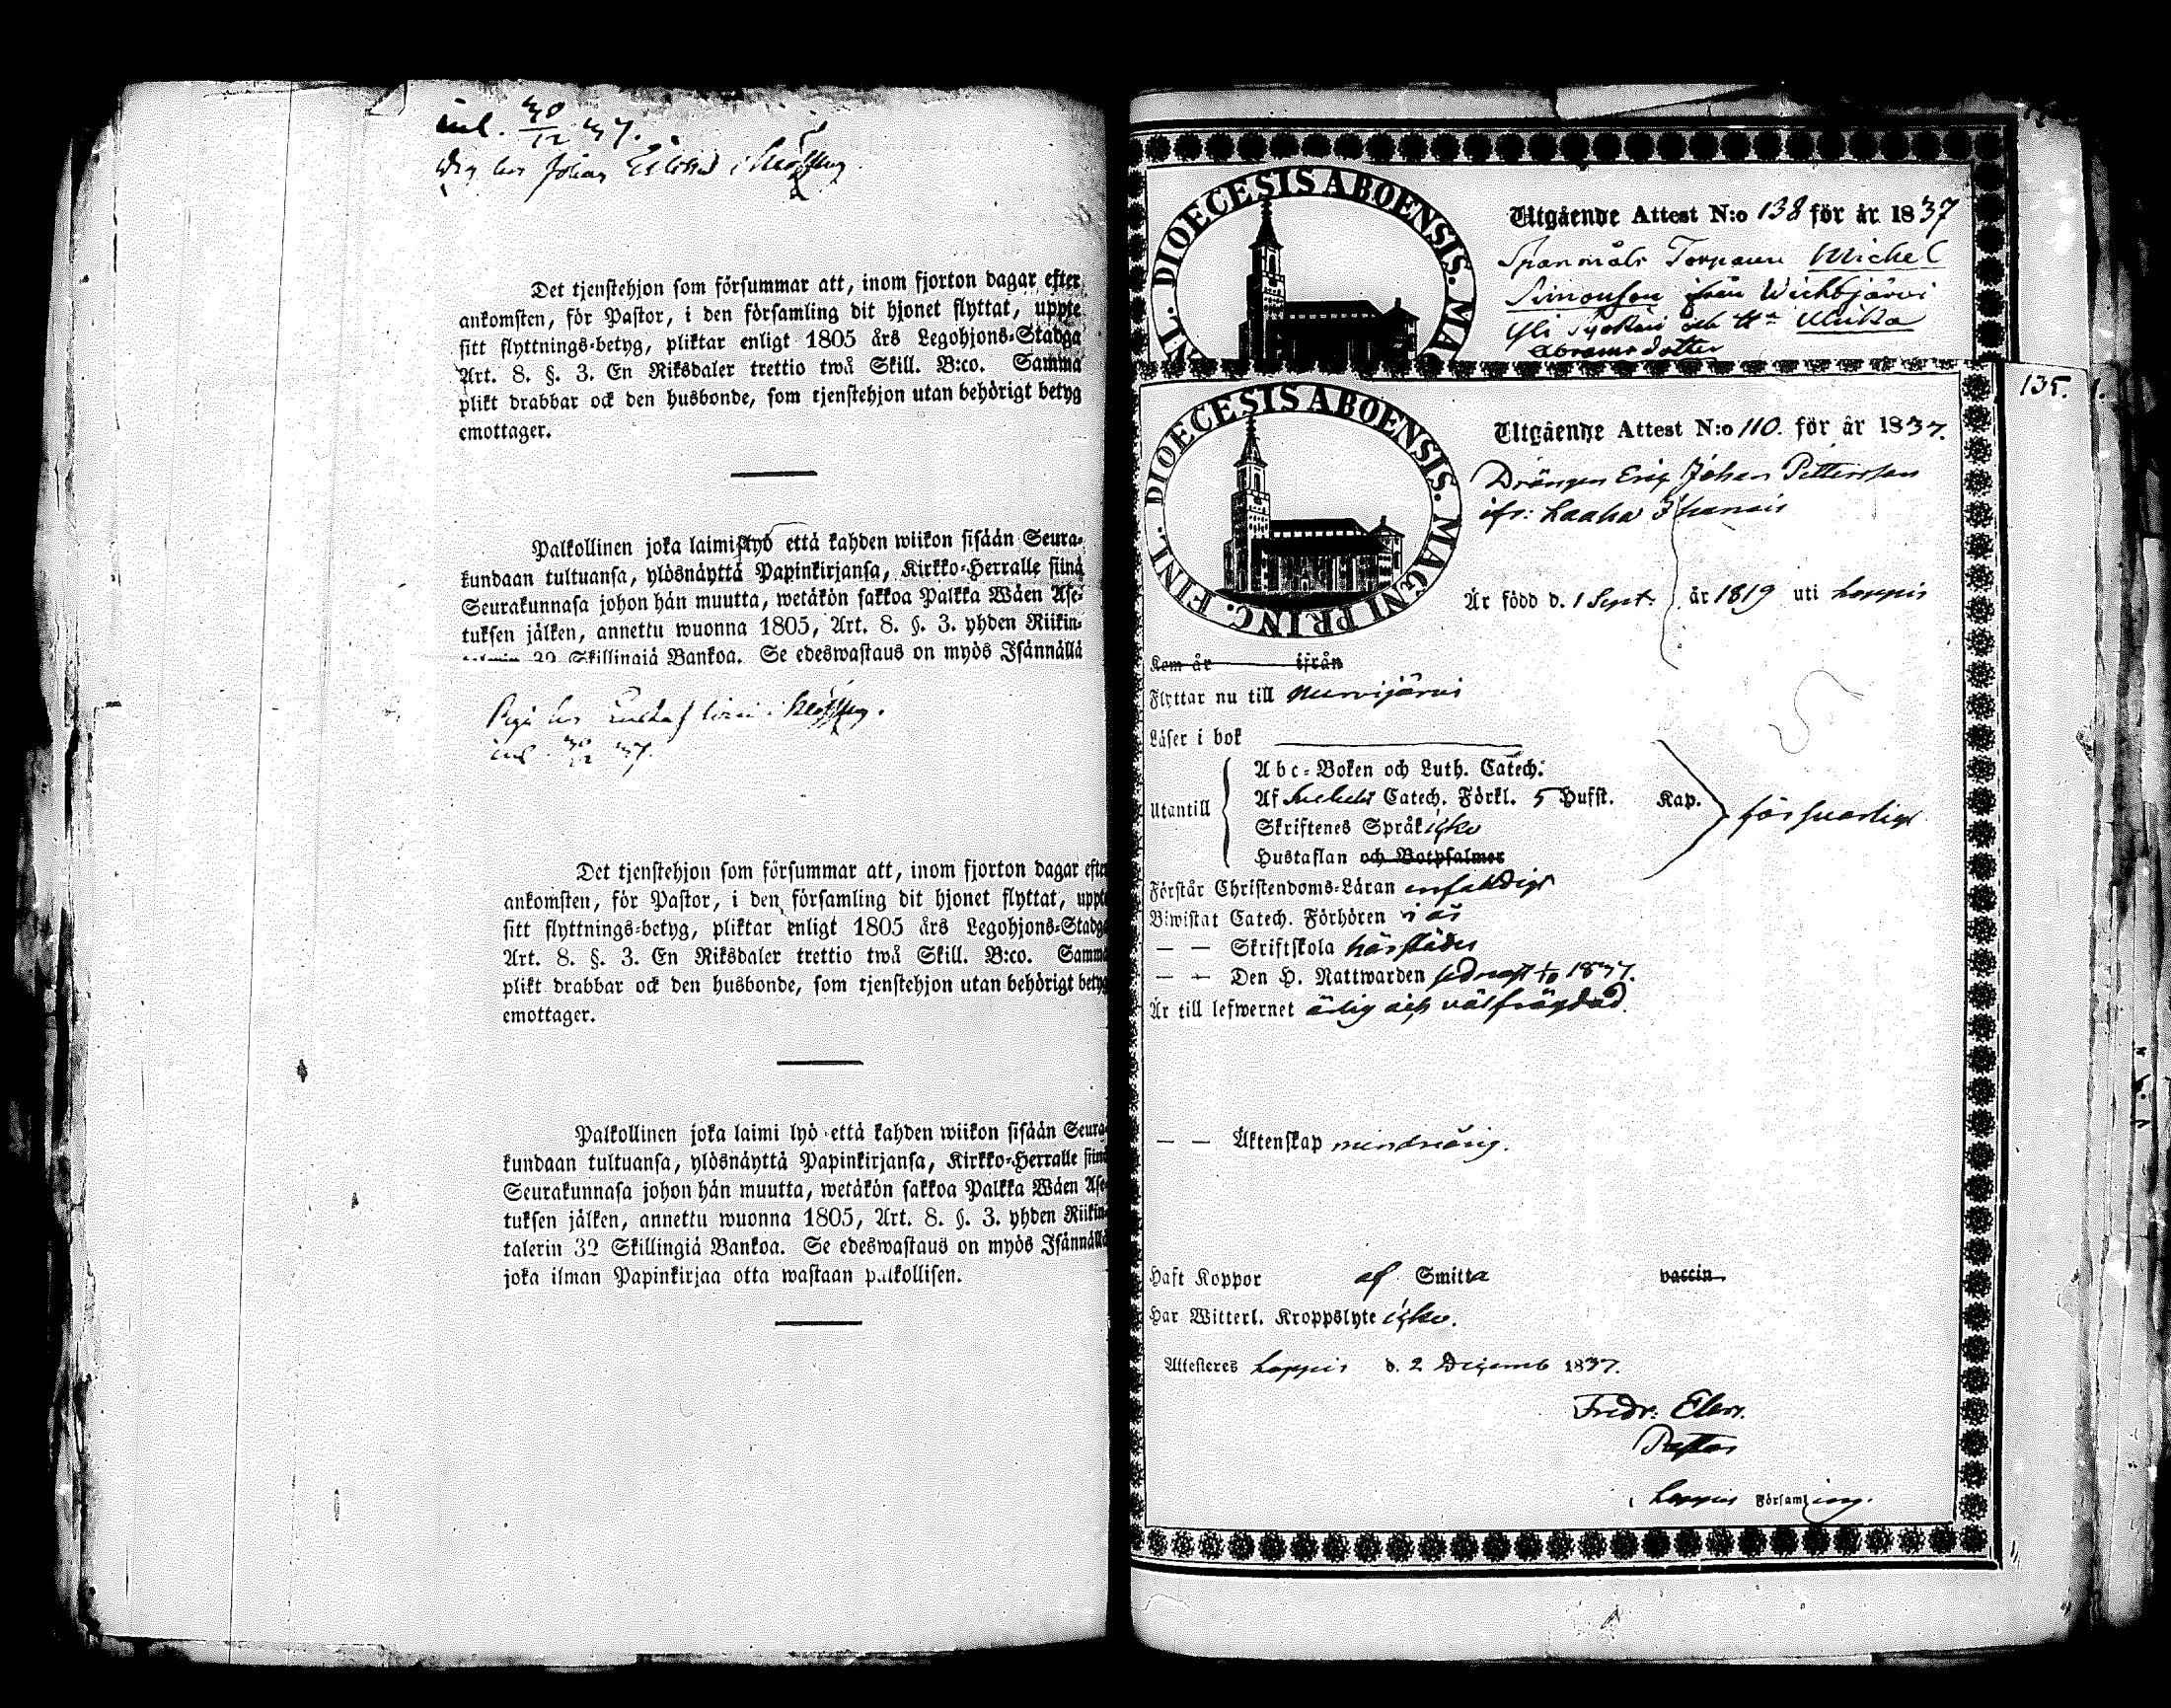 inl. 30/12 37.
Drg hos Johan
Det tjenstehjon som försummar att, inom fjorton dagar efter
ankomsten, för Pastor, i den församling dit hjonet flyttat, uppte
sitt flyttnings-betyg, pliktar enligt 1805 års Legohjons-Stadga
Art. 8. §. 3. En Riksdaler trettio twå Skill. B:co. Samma
plikt drabbar ock den husbonde, som tjenstehjon utan behörigt betyg
emottager.
Palkollinen joka laimilyö että kahden wiikon sisään Seura-
kundaan tultuansa, ylösnäyttä Papinkirjansa, Kirkko-Herralle siinä
Seurakunnasa johon hän muutta, wetäkön sakkoa Palkka Wäen Ase-
tuksen jälken, annettu wuonna 1805, Art. 8. §. 3. yhden Riikin-
talerin 32 Skillingiä Bankoa. Se edeswastaus on myös Isännällä
Piga hos Gustaf
inl 30/12 37.
Det tjenstehjon som försummar att, inom fjorton dagar efter
ankomsten, för Pastor, i den församling dit hjonet flyttat, uppte
sitt flyttnings-betyg, pliktar enligt 1805 års Legohjons-Stadga
Art. 8. §. 3. En Riksdaler trettio twå Skill. B:co. Samma
plikt drabbar ock den husbonde, som tjenstehjon utan behörigt betyg
emottager.
Palkollinen joka laimi lyö että kahden wiikon sisään Seura-
kundaan tultuansa, ylösnäyttä Papinkirjansa, Kirkko-Herralle siinä
Seurakunnasa johon hän muutta, wetäkön sakkoa Palkka Wäen Ase-
tuksen jälken, annettu wuonna 1805, Art. 8. §. 3. yhden Riikin-
talerin 32 Skillingiä Bankoa. Se edeswastaus on myös Isännällä
joka ilman Papinkirjaa otta wastaan palkollisen.
FINL. DIOECESIS ABOENSIS. MAG
Utgående Attest N:o 138 för år 1837
Spanmåls Torparen Michel
Simonsson ifrån Wichtjärvi
Yli och H:u Ulrika
Abramsdotter
135.
DIOECESIS ABOENSIS. MAGNI PRINC. FINL.
Utgående Attest N:o 110. för år 1837.
Drängen Eric Johan Pettersson
ifr: Laaha
Är född d. 1 Sept: år 1819 uti Loppis
Kom år ifrån
Flyttar nu till Nurmijärvi
Läser i bok
Abc-Boken och Luth. Catech.
Utantill
Af Svebelii Catech. Förkl. 5 Hufst. Kap.
försvarligt
Skriftenes Språk icke
Hustaflan och Botpsalmer
Förstår Christendoms-Läran enfaldigt
Biwistat Catech. Förhören i år
— — Skriftskola härstädes
— — Den H. Nattwarden sednast 1837.
Är till lefwernet ärlig och välfrägdad.
— — Äktenskap minderårig.
Haft Koppor af Smitta vaccin.
Har Witterl. Kroppslyte icke.
Attesteres Loppis d. 2 Decemb 1837.
Fredr: Elers.
Pastor
i Loppis Församling.